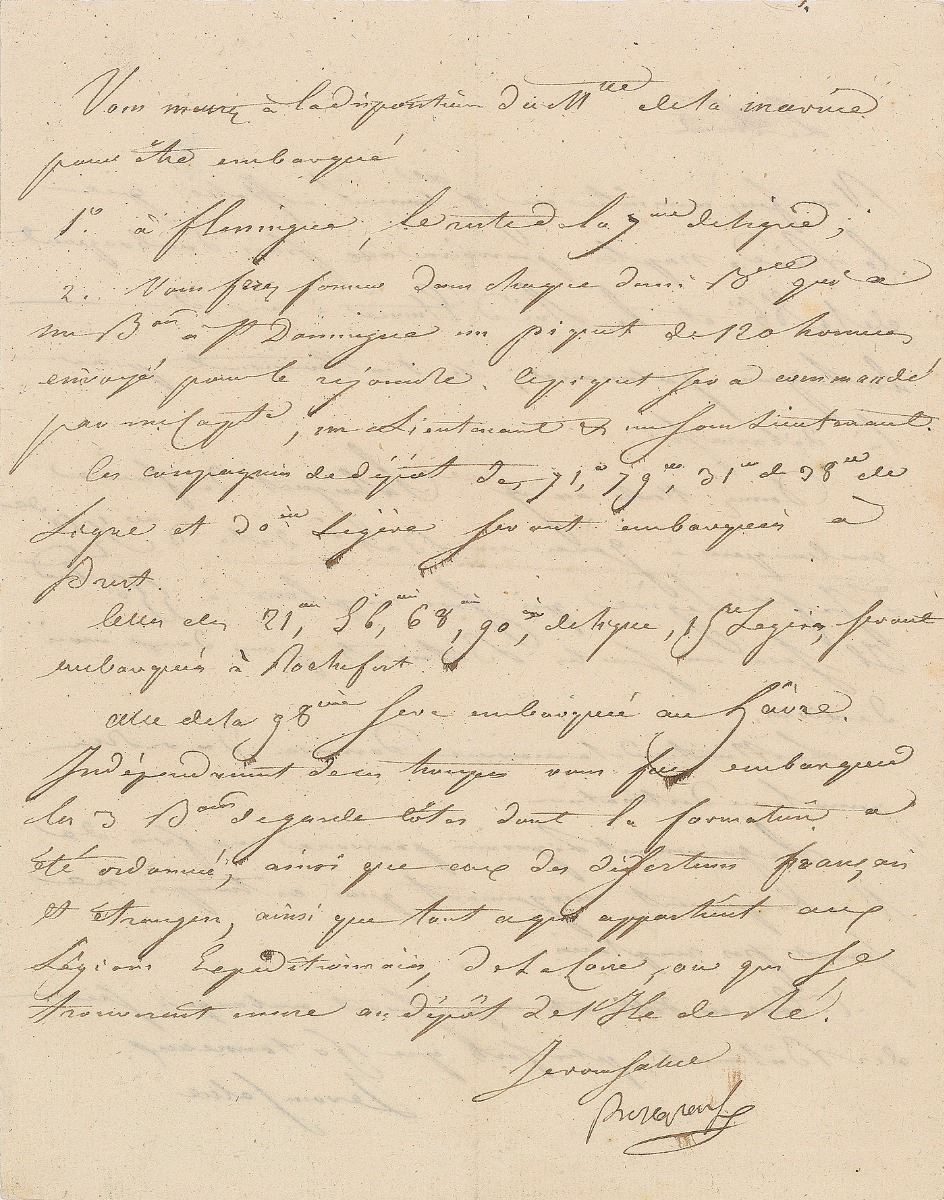 Vous mettrez à la disposition du Mtre de la marine
pour être embarqué
1o. à flessingue, le reste de la 7ème de ligne;
2. Vous ferez former dans chaque demi Bde qui a
un Bon à St Domingue un piquet de 120 hommes
envoyé pour le rejoindre. Ce piquet sera commandé
par un Capne, un Lieutenant & un sous Lieutenant.
les compagnies de dépôt des 71e, 79me, 31me & 38me de
Ligne et 30ème Légère seront embarquées à
Brest.
Celles des 21me, 56me, 68me, 90me, de ligne, 15me Légère, seront
embarquées à Rochefort
celle de la 98ième sera embarquée au hâvre.
Indépendament de ces troupes vous fais embarquer
les 3 Bons de garde Côtes dont la formation a
été ordonnée, ainsi que ceux des déserteurs français
et étrangers, ainsi que tout ce qui appartient aux
Légions Expéditionnaires, de la Loire, ou qui se
trouverait encore au dépôt de l'Ile de Ré.
Je vous salue
Bonaparte